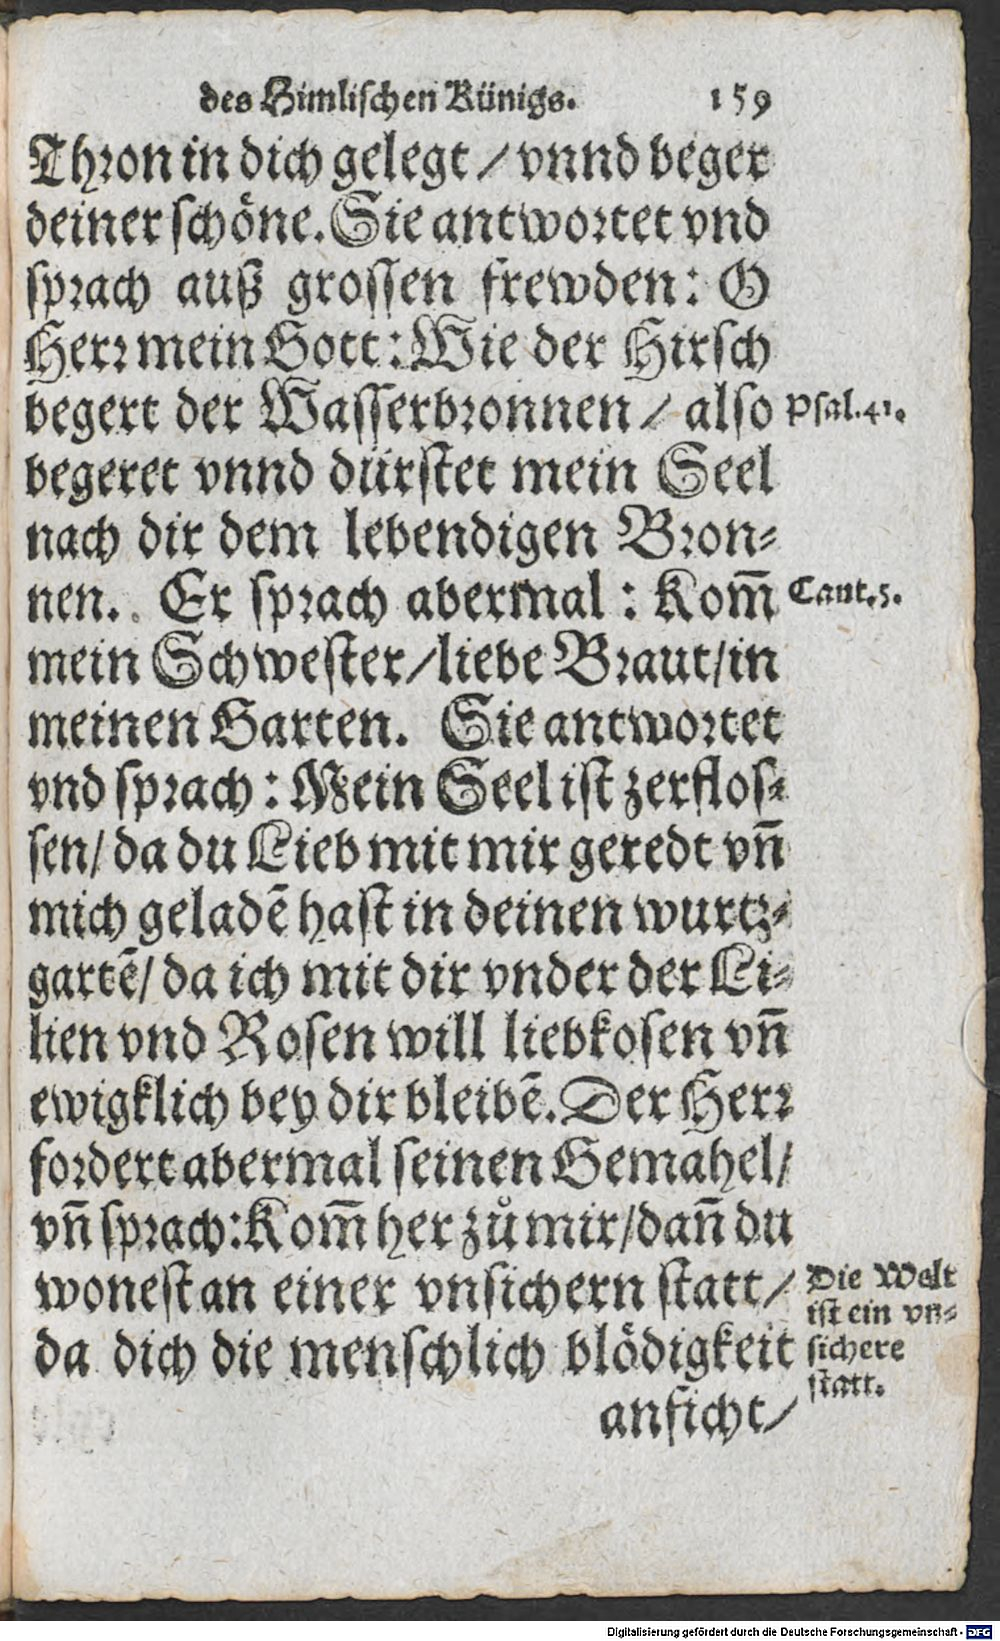 des Himlischen Künigs. 159
Thron in dich gelegt / vnnd beger
deiner schöne. Sie antwortet vnd
sprach auß grossen frewden: O
Herr mein Gott: Wie der Hirsch
begert der Wasserbronnen / also
Psal. 41.
begeret vnnd dürstet mein Seel
nach dir dem lebendigen Bron-
nen. Er sprach abermal: Kom̃
Cant. 5.
mein Schwester / liebe Braut / in
meinen Garten. Sie antwortet
vnd sprach: Mein Seel ist zerflos-
sen / da du Lieb mit mir geredt vñ
mich geladẽ hast in deinen wurtz-
gartẽ / da ich mit dir vnder der Li-
lien vnd Rosen will liebkosen vñ
ewigklich bey dir bleibẽ. Der Herr
fordert abermal seinen Gemahel /
vñ sprach: Kom̃ her zů mir / dañ du
wonest an einer vnsichern statt /
da dich die menschlich blödigkeit
Die Welt
ist ein vn-
sichere
statt.
anficht /
Digitalisierung gefördert durch die Deutsche Forschungsgemeinschaft - DFG